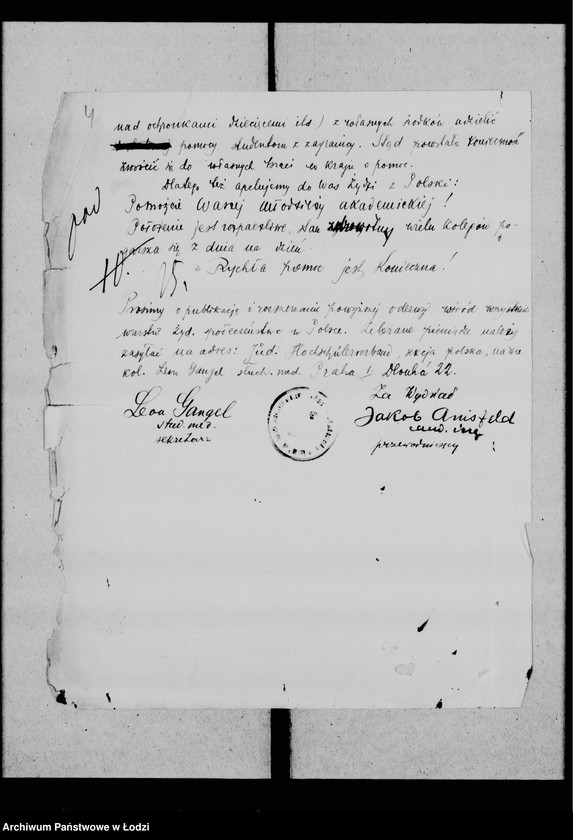 4
nad ochronkami dziecięcemi itd) z własnych środków udzielić
pomocy studentom z zagranicy. Stąd powstała konieczność
zwrócić się do własnych braci w kraju o pomoc.
Dlatego też apelujemy do Was Żydzi z Polski:
Pomóżcie Waszej młodzieży akademickiej!
Położenie jest rozpaczliwe, stan zdrowotny wielu kolegów po-
garsza się z dnia na dzień
Rychła pomoc jest konieczna!
Prosimy o publikację i rozesłanie powyższej odezwy wśród wszystkich
warstw żyd. społeczeństwa w Polsce. Zebrane pieniądze należy
zasyłać na adres: Jüd. Hochschülerverband, sekcja polska, na ręce
kol. Leon Gangel stud. med. Praha I Dlouhá 22.
Leon Gangel
stud. med.
sekretarz
Za Wydział
Jakob Anisfeld
przewodniczący
Archiwum Państwowe w Łodzi